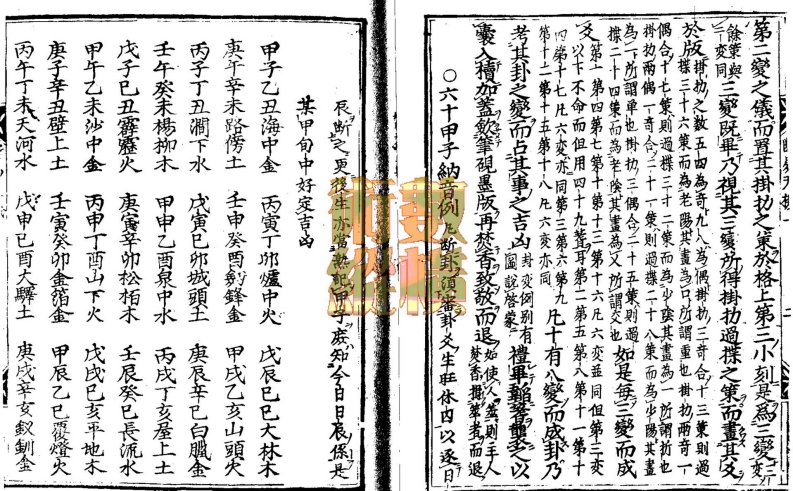 第二變之儀而置其掛扐之策於格上第三小刻是為三變
餘策與
二變同
三變既畢乃視其三變所得掛扐過揲之策而畫其爻
於版
掛扐之数五四為奇九八為偶掛扐三奇合十三策則過
揲三十六策而為老陽其畫為口所謂重也掛扐兩奇一
偶合十七策則過揲三十二策而為少陰其畫為一所謂拆也
掛扐兩偶一奇合二十一策則過揲二十八策而為少陽其畫
為一所謂單也掛扐三偶合二十五策則過
揲二十四策而為老陰其畫為乂所謂交也
如是每三變而成
爻
第一第四第七第十第十三第十六凡六變並同但第三變
以下不命而但用四十九蓍耳第二第五第八第十一第十
四第十七凡六變亦同第三第六第九
第十二第十五第十八凡六變亦同
凡十有八變而成卦乃
考其卦之變而占其事之吉凶
卦變例別有
圖說啓蒙
禮畢韜蓍襲卦以
囊入櫝加蓋歛筆硯墨版再焚香致敬而退
如使人筮則主人
焚香揖筮者而退
〇六十甲子納音例
凡断卦須審卦爻生旺休囚以逐日
辰断之更後生亦當熟記甲子庶知今日日辰係是
某甲旬中好定吉凶
甲子乙丑海中金 丙寅丁卯爐中火 戊辰己巳大林木
庚午辛未路傍土 壬申癸酉釼鋒金 甲戌乙亥山頭火
丙子丁丑澗下水 戊寅己卯城頭土 庚辰辛巳白臘金
壬午癸未楊柳木 甲申乙酉泉中水 丙戌丁亥屋上土
戊子己丑霹靂火 庚寅辛卯松柏木 壬辰癸巳長流水
甲午乙未沙中金 丙申丁酉山下火 戊戌己亥平地木
庚子辛丑壁上土 壬寅癸卯金箔金 甲辰乙巳覆燈火
丙午丁未天河水 戊申己酉大驛土 庚戌辛亥釵釧金